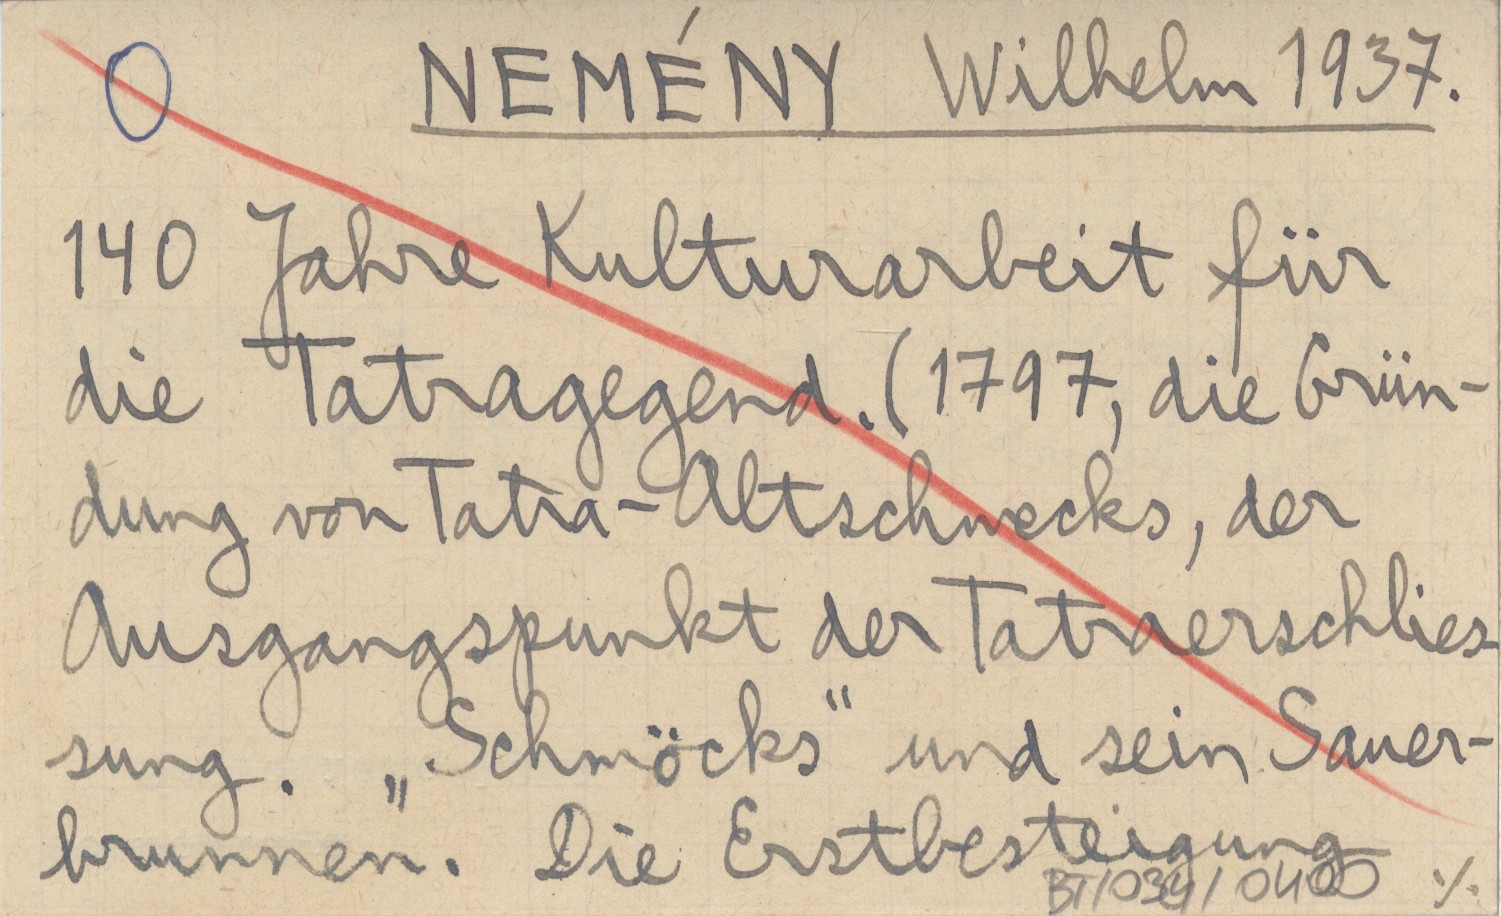 O NEMÉNY Wilhelm 1937.
140 Jahre Kulturarbeit für
die Tatragegend. (1797, die Grün-
dung von Tatra-Altschmecks, der
Ausgangspunkt der Tatraerschlies-
sung. „Schmöcks" und sein Sauer-
brunnen. Die Erstbesteigung
BT/034/0400 ./.